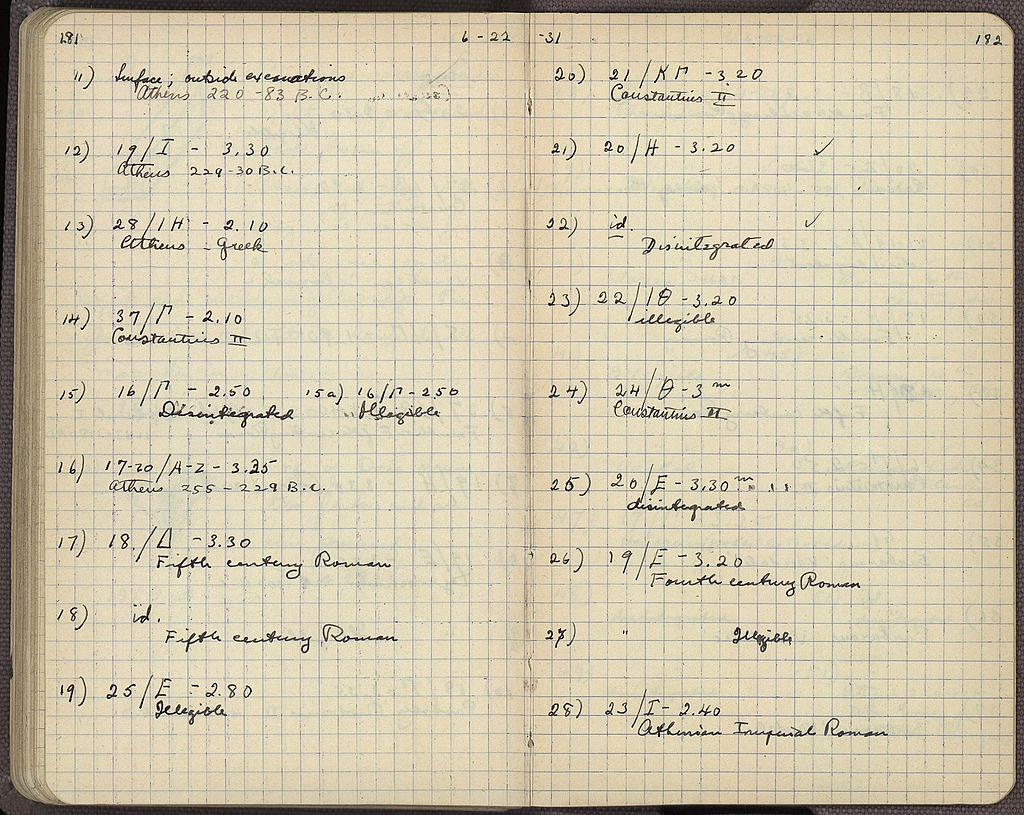 181
6 - 22
11) Surface; outside excavations
Athens 220 - 83 B.C.
12) 19/I - 3.30
Athens 229-30 B.C.
13) 28/ΙΗ - 2.10
Athens - Greek
14) 37/Γ - 2.10
Constantius II
15) 16/Γ - 2.50 15a) 16/Γ - 2.50
Disintegrated Illegible
16) 17-20/A-Z - 3.25
Athens 255 - 229 B.C.
17) 18/Δ - 3.30
Fifth century Roman
18) id.
Fifth century Roman
19) 25/E - 2.80
Illegible
-31
182
20) 21/ΚΓ - 3.20
Constantius II
21) 20/H - 3.20 ✓
22) id. ✓
Disintegrated
23) 22/ΙΘ - 3.20
illegible
24) 24/Θ - 3 m
Constantius II
25) 20/E - 3.30 m
disintegrated
26) 19/E - 3.20
Fourth century Roman
27) " Illegible
28) 23/I - 2.40
Athenian Imperial Roman